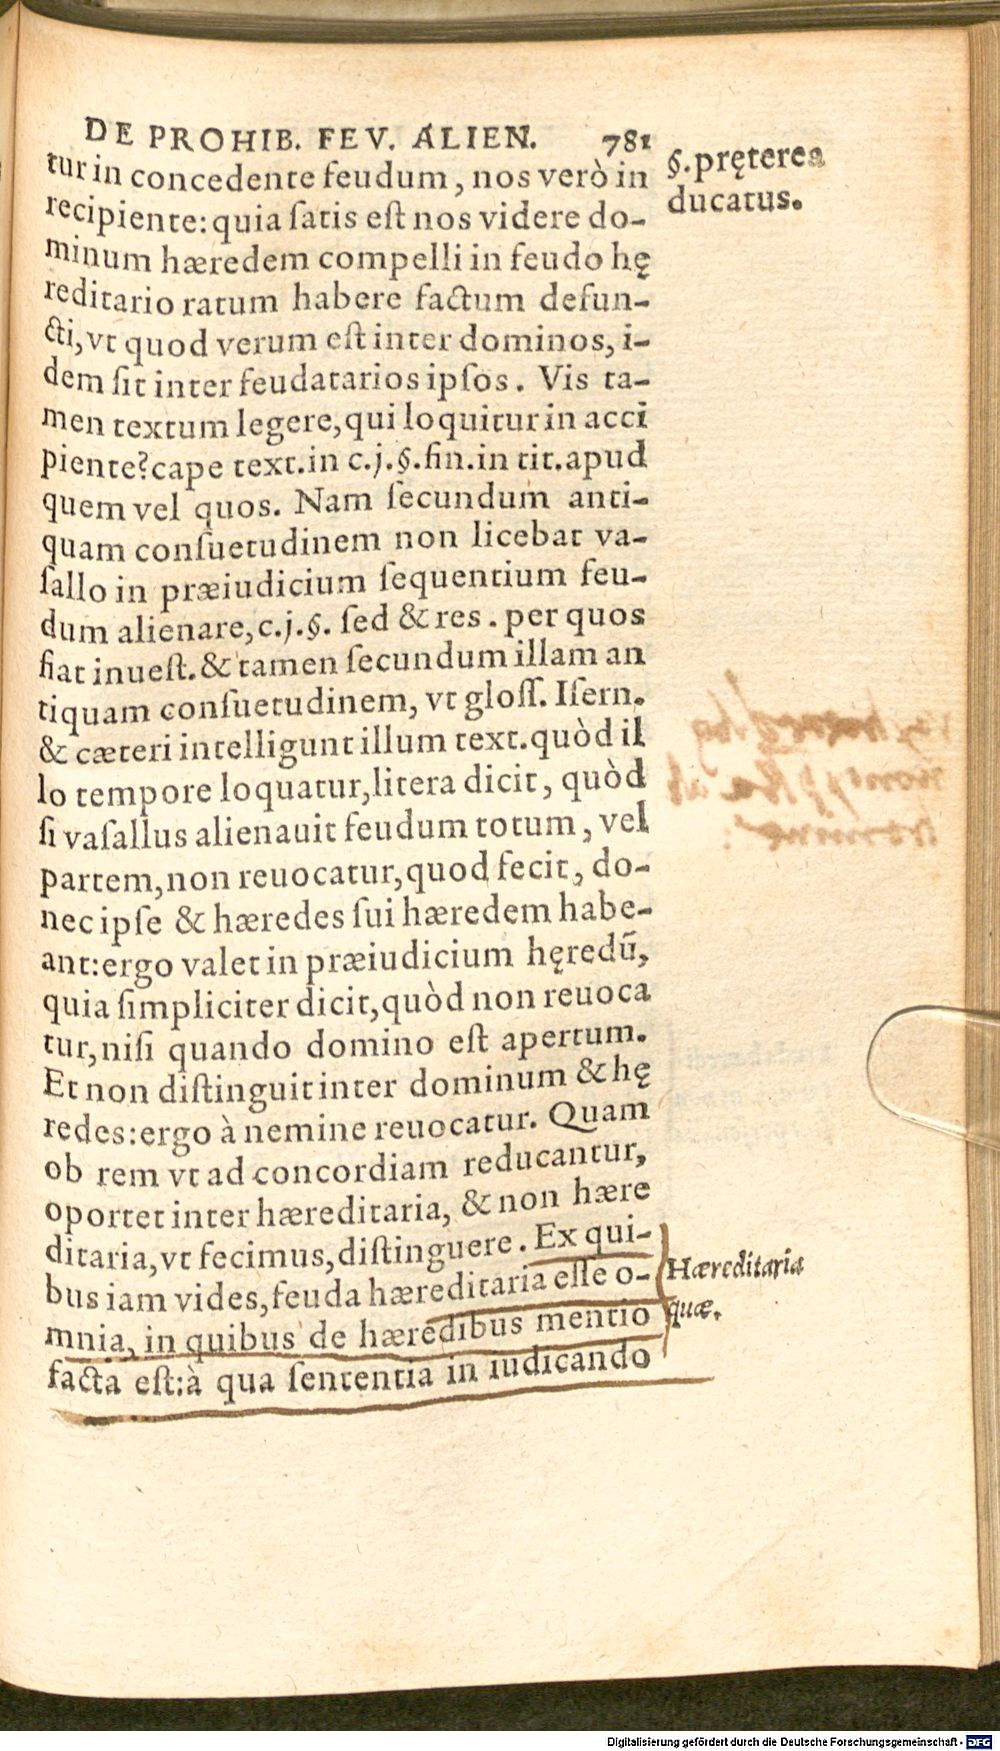 DE PROHIB. FEV. ALIEN. 781
§. pręterea
ducatus.
tur in concedente feudum, nos verò in
recipiente: quia ſatis eſt nos videre do-
minum hæredem compelli in feudo hę
reditario ratum habere factum defun-
cti, vt quod verum eſt inter dominos, i-
dem ſit inter feudatarios ipſos. Vis ta-
men textum legere, qui loquitur in acci
piente? cape text. in c. j. §. fin. in tit. apud
quem vel quos. Nam ſecundum anti-
quam conſuetudinem non licebat va-
ſallo in præiudicium ſequentium feu-
dum alienare, c. j. §. ſed & res. per quos
fiat inueſt. & tamen ſecundum illam an
tiquam conſuetudinem, vt gloſſ. Iſern.
& cæteri intelligunt illum text. quòd il
lo tempore loquatur, litera dicit, quòd
ſi vaſallus alienauit feudum totum, vel
partem, non reuocatur, quod fecit, do-
nec ipſe & hæredes ſui hæredem habe-
ant: ergo valet in præiudicium hęredū,
quia ſimpliciter dicit, quòd non reuoca
tur, niſi quando domino eſt apertum.
Et non diſtinguit inter dominum & hę
redes: ergo à nemine reuocatur. Quam
ob rem vt ad concordiam reducantur,
oportet inter hæreditaria, & non hære
ditaria, vt fecimus, diſtinguere. Ex qui-
bus iam vides, feuda hæreditaria eſſe o-
mnia, in quibus de hæredibus mentio
facta eſt: à qua ſententia in iudicando
Hæreditaria
quæ.
Digitalisierung gefördert durch die Deutsche Forschungsgemeinschaft - DFG